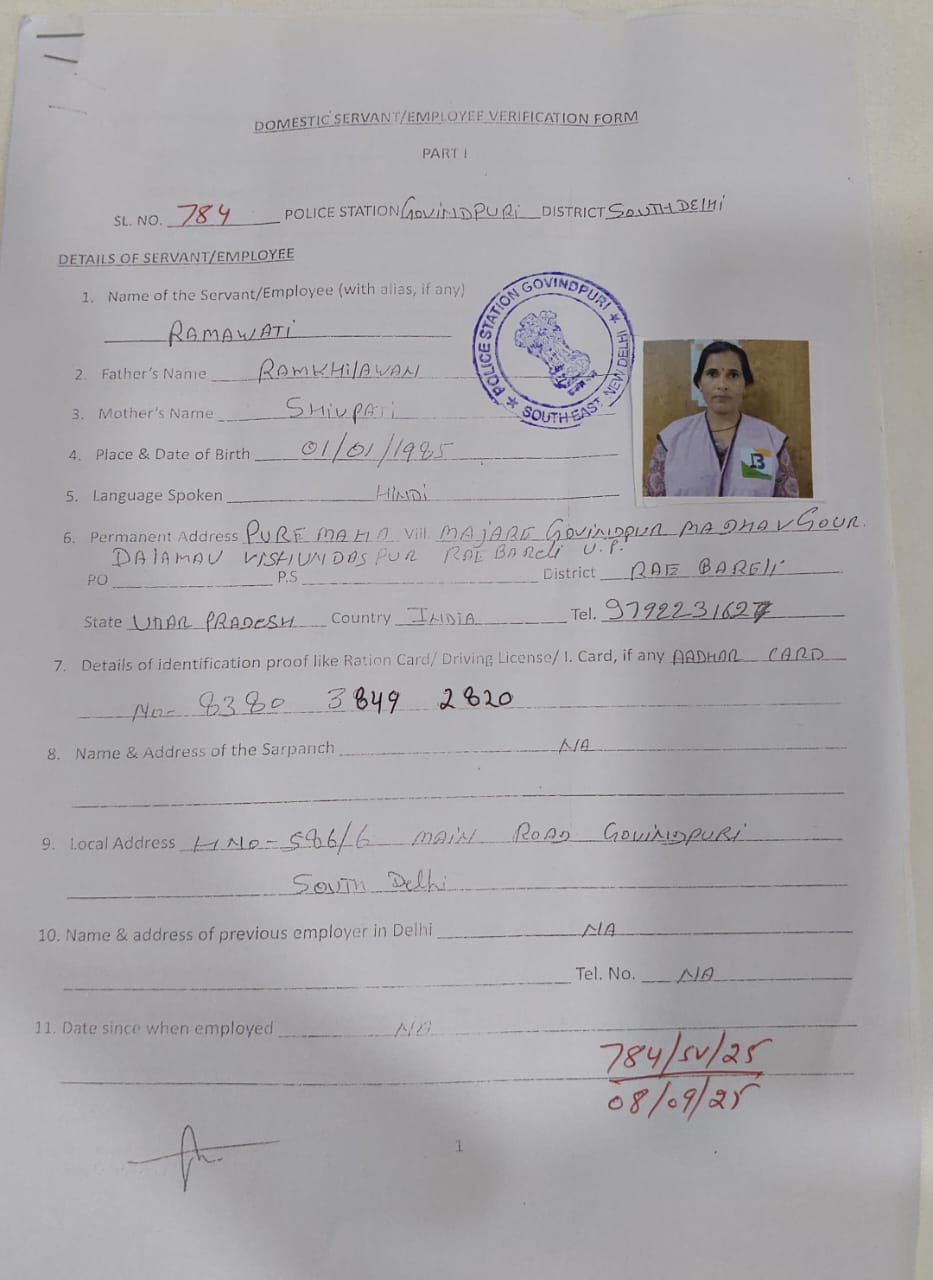 DOMESTIC SERVANT/EMPLOYEE VERIFICATION FORM
PART I
SL. NO. 784 POLICE STATION GOVINDPURI DISTRICT SOUTH DELHI
DETAILS OF SERVANT/EMPLOYEE
1. Name of the Servant/Employee (with alias, if any)
RAMAWATI
POLICE STATION GOVINDPURI ★ SOUTH-EAST NEW DELHI ★
2. Father's Name RAMKHILAWAN
3. Mother's Name SHIVPATI
4. Place & Date of Birth 01/01/1985
5. Language Spoken HINDI
B
6. Permanent Address PURE MAHA Vill. MAJARE GOVINDPUR MADHAV GOUR.
DALAMAU VISHUNDASPUR RAE BARELI U.P.
PO P.S District RAE BARELI
State UTTAR PRADESH Country INDIA Tel. 9792231627
7. Details of identification proof like Ration Card/ Driving License/ I. Card, if any AADHAR CARD
No- 8380 3849 2820
8. Name & Address of the Sarpanch NA
9. Local Address H NO- 586/6 MAIN ROAD GOVINDPURI
SOUTH Delhi
10. Name & address of previous employer in Delhi NA
Tel. No. NA
11. Date since when employed NA
784/SV/25
08/09/25
1